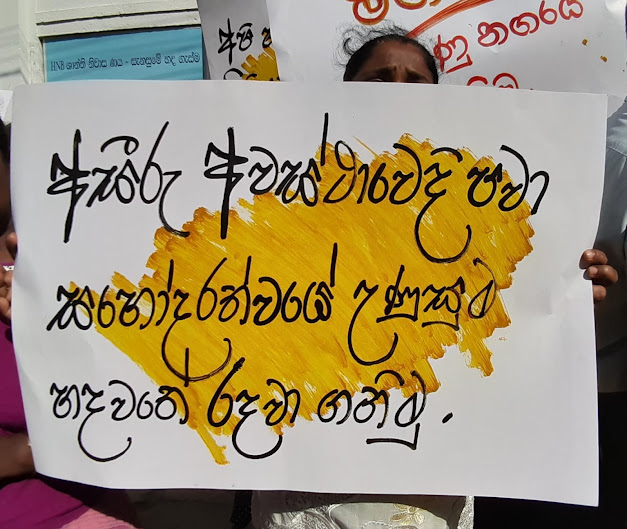 HNB ශාන්ති නිවාස ණය - සැනසුමේ හද ගැස්ම
අපි
නගරය
අසීරු අවස්ථාවේදී පවා
සහෝදරත්වයේ උණුසුම
හදවතේ රඳවා ගනිමු.